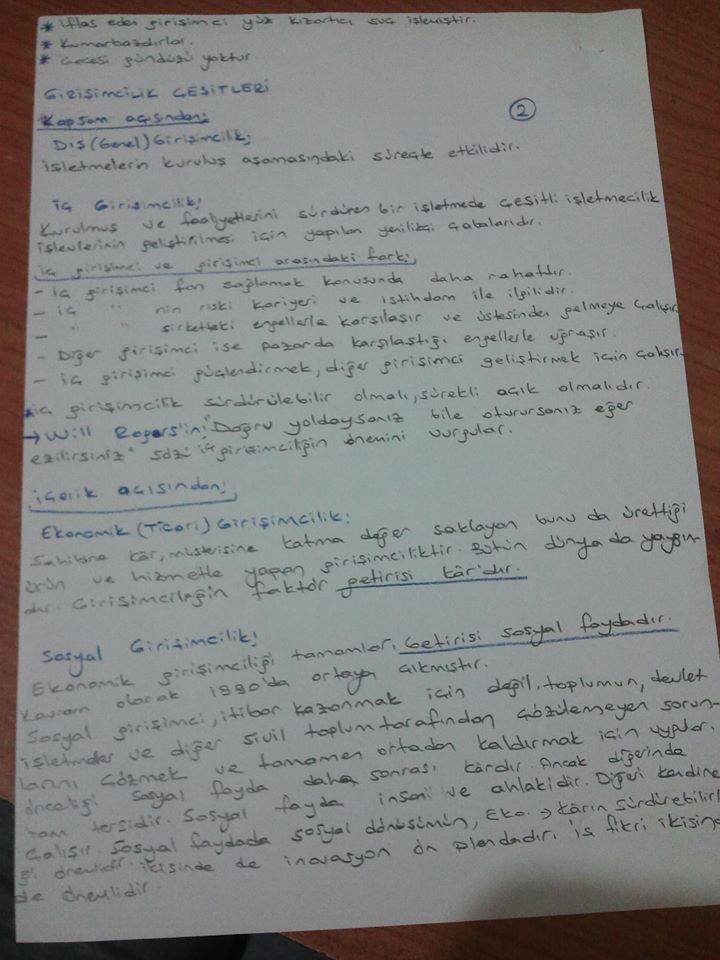 * iflas eden girişimci yüz kızartıcı suç işlemiştir.
* Kumarbazdırlar.
* Gecesi gündüzü yoktur
GİRİŞİMCİLİK ÇEŞİTLERİ
Kapsam açısından;
2
DIŞ (Genel) Girişimcilik;
işletmelerin kuruluş aşamasındaki süreçte etkilidir.
iç Girişimcilik!
Kurulmuş ve faaliyetlerini sürdüren bir işletmede çeşitli işletmecilik
işlevlerinin geliştirilmesi için yapılan yenilikçi çabalarıdır.
iç girişimci ve girişimci arasındaki farkı;
- iç girişimci fon sağlamak konusunda daha rahattır.
- iç " nin riski kariyeri ve istihdam ile ilgilidir.
- " " şirketteki engellerle karşılaşır ve üstesinden gelmeye çalışır.
- Diğer girişimci ise pazarda karşılaştığı engellerle uğraşır.
- iç girişimci güçlendirmek, diğer girişimci geliştirmek için çalışır.
* iç girişimcilik sürdürülebilir olmalı, sürekli açık olmalıdır.
→ Will Rogers'in; "Doğru yoldaysanız bile oturursanız eğer
ezilirsiniz" sözü iç girişimciliğin önemini vurgular.
içerik açısından;
Ekonomik (Ticari) Girişimcilik:
Sahibine kâr, müşterisine katma değer saklayan bunu da ürettiği
ürün ve hizmetle yapan girişimciliktir. Bütün dünya da yaygın-
dır. Girişimciliğin faktör getirisi kâr'dır.
Sosyal Girişimcilik!
Ekonomik girişimciliği tamamlar. Getirisi sosyal faydadır.
Kavram olarak 1990'da ortaya çıkmıştır.
Sosyal girişimci, itibar kazanmak için değil, toplumun, devlet
işletmeler ve diğer sivil toplum tarafından çözülemeyen sorun-
larını çözmek ve tamamen ortadan kaldırmak için uygular.
önceliği sosyal fayda daha sonrası kârdır. Ancak diğerinde
tam tersidir. Sosyal fayda insani ve ahlakidir. Diğeri kendine
çalışır. Sosyal faydada sosyal dönüşümün, Eko. → kârın sürdürebilirli
ği önemlidir. ikisinde de inovasyon ön plandadır. iş fikri ikisinde
de önemlidir.